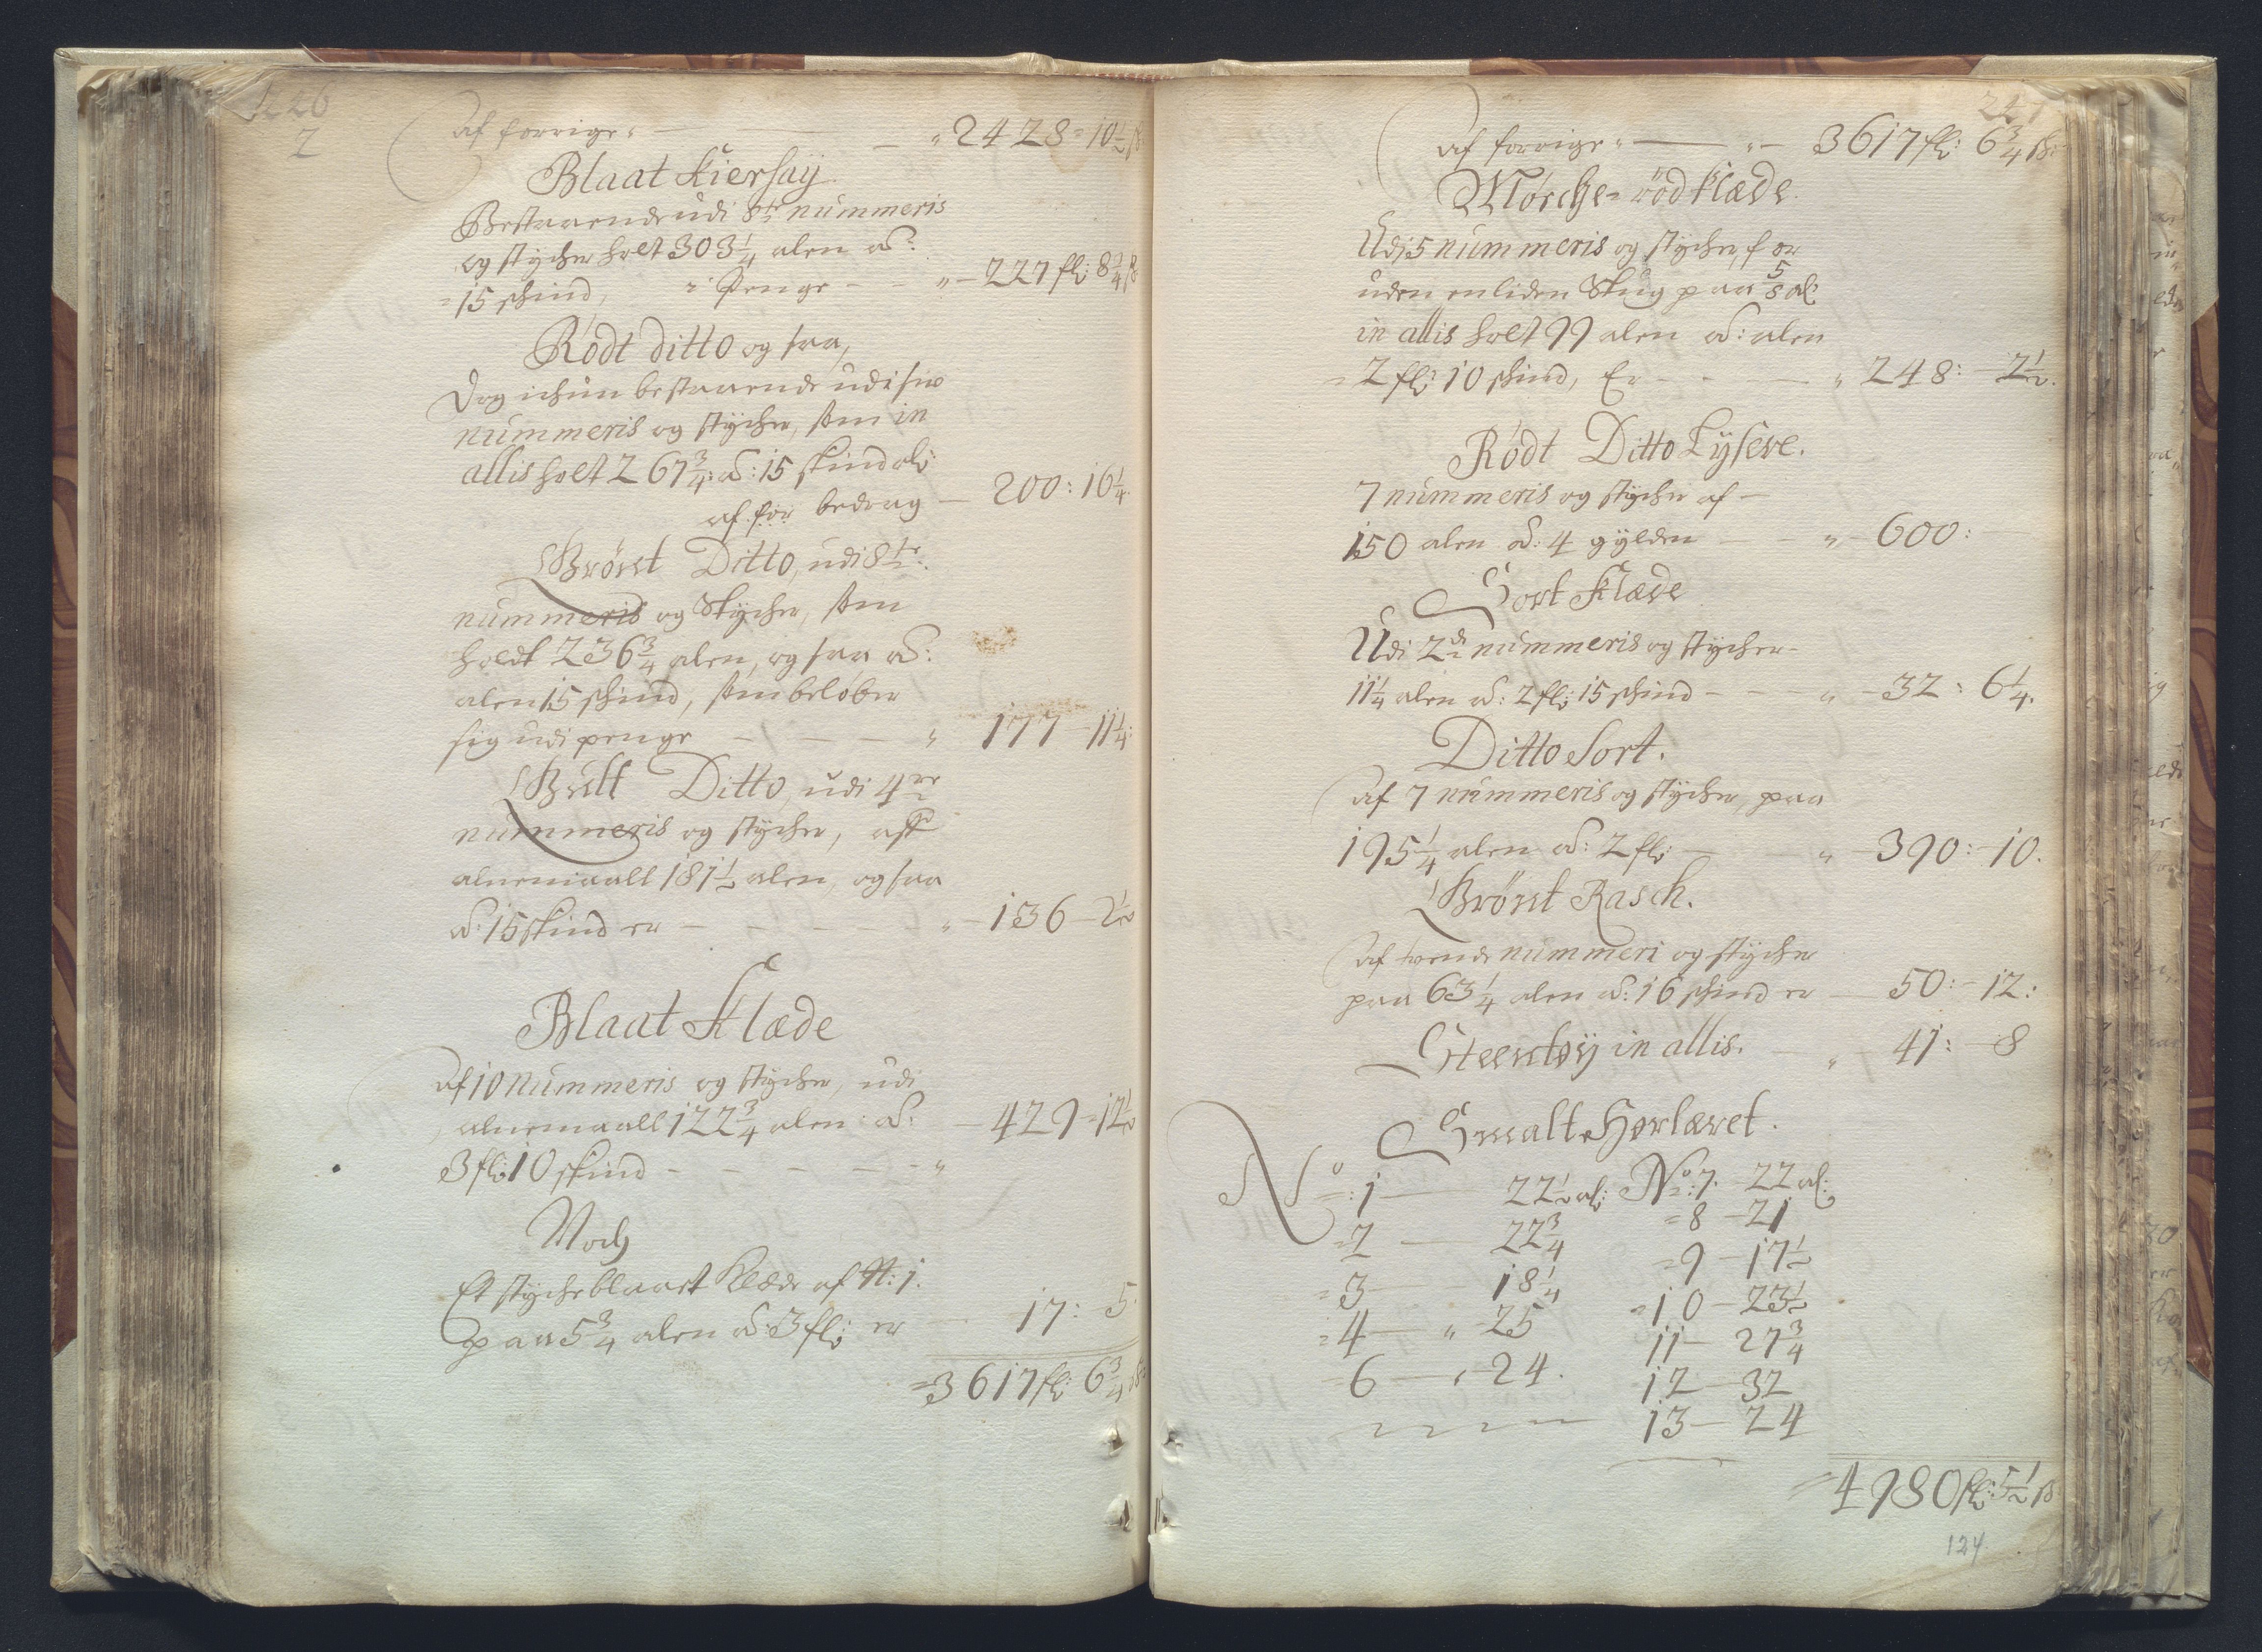 226
2
af forrige " — " 2428 = 10½ ß
Blaat Kiersay
Bestaaende udi 8te nummeris
og stycher holt 303¼ alen a:
15 skind, i Penge - - " - 227 fl: 8¾ ß
Rödt ditto og saa,
Dog ichun bestaaende udi siu
nummeris og stycher, som in
allis holt 267¾: a: 15 skind al:
af for bedrag — 200: 16¼
Brönet Ditto, udi 8te
nummeris og Stycher, som
holdt 236¾ alen, og saa a:
alen 15 skind, som beløber
sig udi penge — — — " 177 - 11¼:
Gült Ditto, udi 4re
nummeris og stycher, aff
alnemaall 181½ alen, og saa
a: 15 skind er — — — " - 136 - 2½
Blaat Klæde
Af 10 Nummeris og stycher, udi
alnemaall 122¾ alen a: — 429 = 12½
3 fl: 10 skind - - - - - "
Noch
Et styche blaaet Klæde af N: 1.
paa 5¾ alen a: 3 fl: er — 17: 5.
= 3617 fl: 6¾ ß
247
af forrige " — " — 3617 fl: 6¾ ß:
Mörche-röd Klæde.
Udj 5 nummeris og stycher, for
uden en liden Stug paa 5/8 al:
in allis holt 99 alen a: alen
= 2 fl: 10 skind, Er - - — " 248: - 2½.
Rödt Ditto Lysere.
7 nummeris og stycher af —
150 alen a: 4 gylden — - " - 600: -
Sort Klæde
Udi 2de nummeris og stycher -
11¼ alen a: 2 fl: 15 skind - - - " - 32: 6¼.
Ditto Sort.
Af 7 nummeris og stycher, paa
195¼ alen a: 2 fl: — " - 390: - 10.
Brönet Rasch.
Af tvende nummeri og stycher
paa 63¼ alen a: 16 skind er — 50: - 12:
Steentøy in allis. — " - 41: - 8
Smalt Hørlæret.
No: 1 — 22½ al: No: 7. - 22 al:
= 2 — 22¾ = 8 - 21
= 3 — 18¼ = 9 - 17½
= 4 — " 25 = 10 - 23½
= 6 — " - 24. 11 — 27¾
12 - 32
13 — 24
= 4980 fl: 5½ ß
124